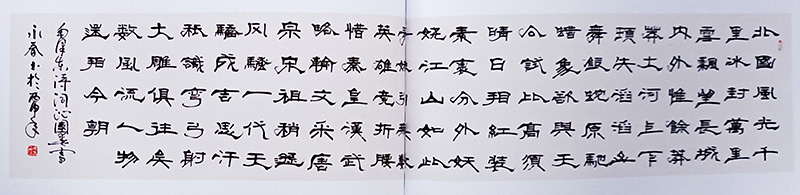 北國風光千
里冰封萬里
雪飄望長城
內外惟餘莽
莽大河上下
頓失滔滔山
舞銀蛇原馳
蠟象欲與天
公試比高須
晴日看紅裝
素裹分外妖
嬈江山如此
多嬌引無數
英雄競折腰
惜秦皇漢武
略輸文采唐
宗宋祖稍遜
風騷一代天
驕成吉思汗
祇識彎弓射
大雕俱往矣
數風流人物
還看今朝
毛澤東詩詞沁園春雪
永春書於丙申年